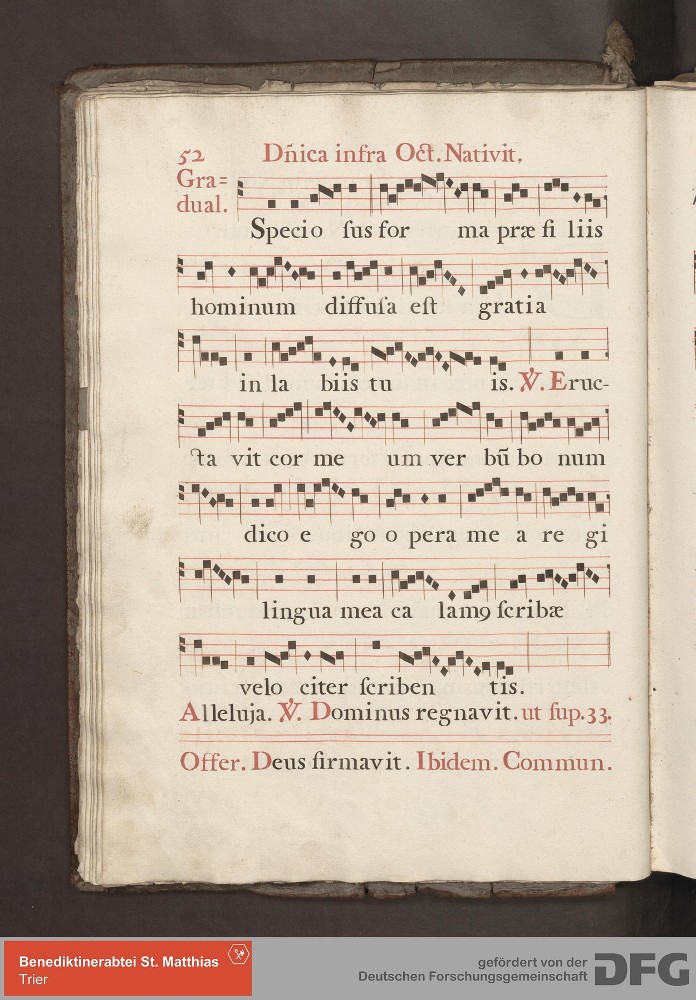 52 Dñica infra Oct. Nativit.
Gra=
dual.
Specio ſus for ma præ fi liis
hominum diffuſa eſt gratia
in la biis tu is. ℣. Eruc-
ta vit cor me um ver bũ bo num
dico e go o pera me a re gi
lingua mea ca lamꝯ ſcribæ
velo citer ſcriben tis.
Alleluja. ℣. Dominus regnavit. ut ſup. 33.
Offer. Deus firmavit. Ibidem. Commun.
Benediktinerabtei St. Matthias
Trier
gefördert von der
Deutschen Forschungsgemeinschaft
DFG